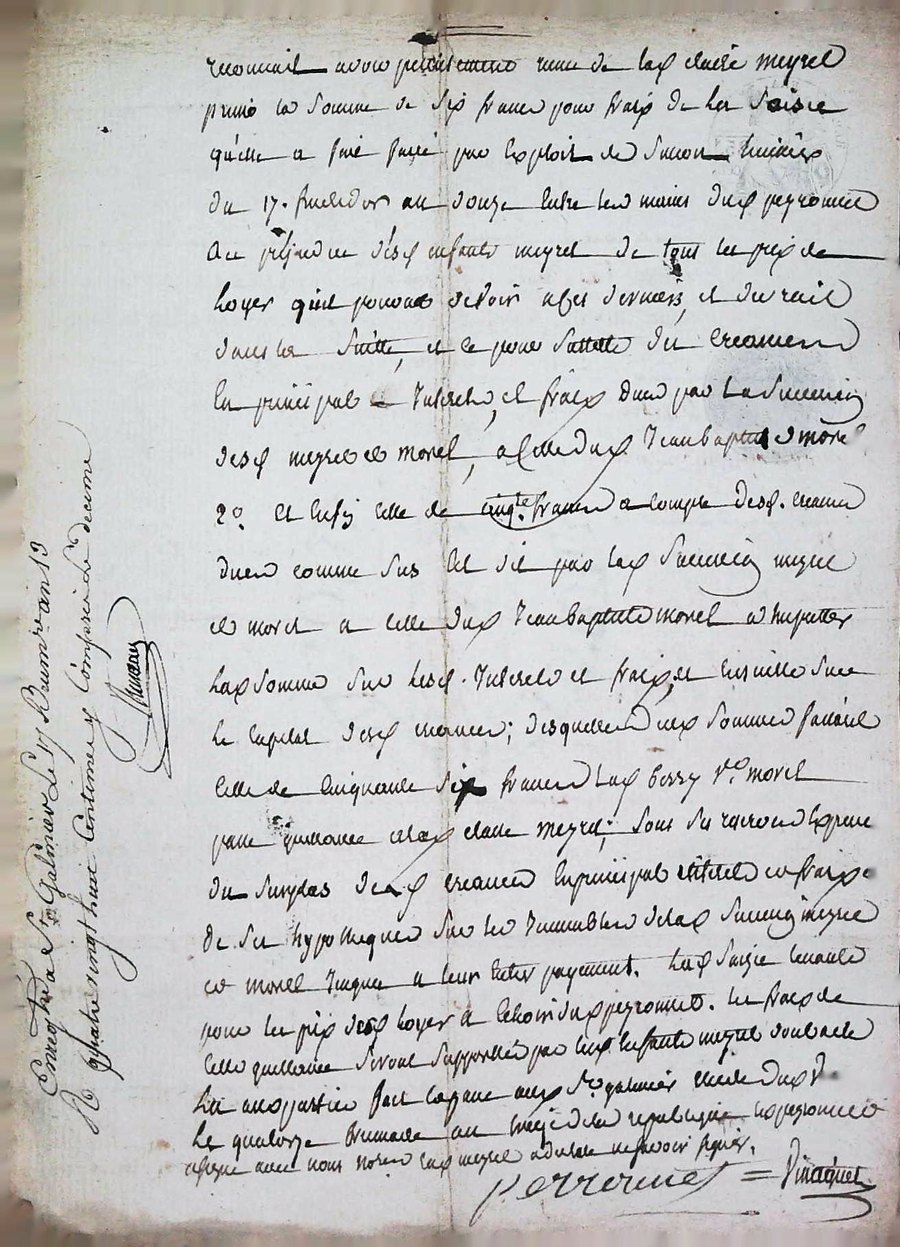 reconnait avoir presentement recu de lad claire meyrel
primo la Somme de Six francs pour fraix de la Saisie
qu'elle a fait faire par Exploit de Simon huissier
du 17. fructidor an douze Entre les mains dud peyronnet
au prejudice desd enfants meyrel de tous les prix de
loyer qu'il pouvoit devoir a ces derniers, et devroit
dans la Suitte, et ce pour Sureté des creances
En principal Interets, et fraix dues par la Succession
desd meyrel et morel, a celle dud Jean baptiste morel
2o. Et Enfin celle de cinqte francs a compte desd. creances
dues comme Sus Est dit par lad Succession meyrel
et morel a celle dud Jean Baptiste morel a imputer
lad Somme Sur lesd. Interets et fraix, et Ensuitte Sur
le Capital desd creances; desquelles deux Sommes faisant
celle de Cinquante Six francs lad Ve. morel
passe quittance alad claire meyrel; Sous Sa reserve Expresse
du Surplus desd creances En principal interets et fraix
de Ses hypotheques Sur les Immeubles delad Succession meyrel
et morel Jusques a leur Entier payement. Lad Saisie tenante
pour les prix desd loyers a Echoir dud peyronnet. les fraix de
celle quittance Seront Supportés par lesd Enfants meyrel
Lu aux parties fait et passé aud St. galmier
Le quatorze brumaire an treize dela republique led peyronnet
a signé avec nous notaire lad meyrel a declaré ne savoir signer.
perronnet = Vinaquet
Enregtré a St. Galmier Le 17 Brumaire an 13
R quatre vingt huit Centimes y Compris le decime